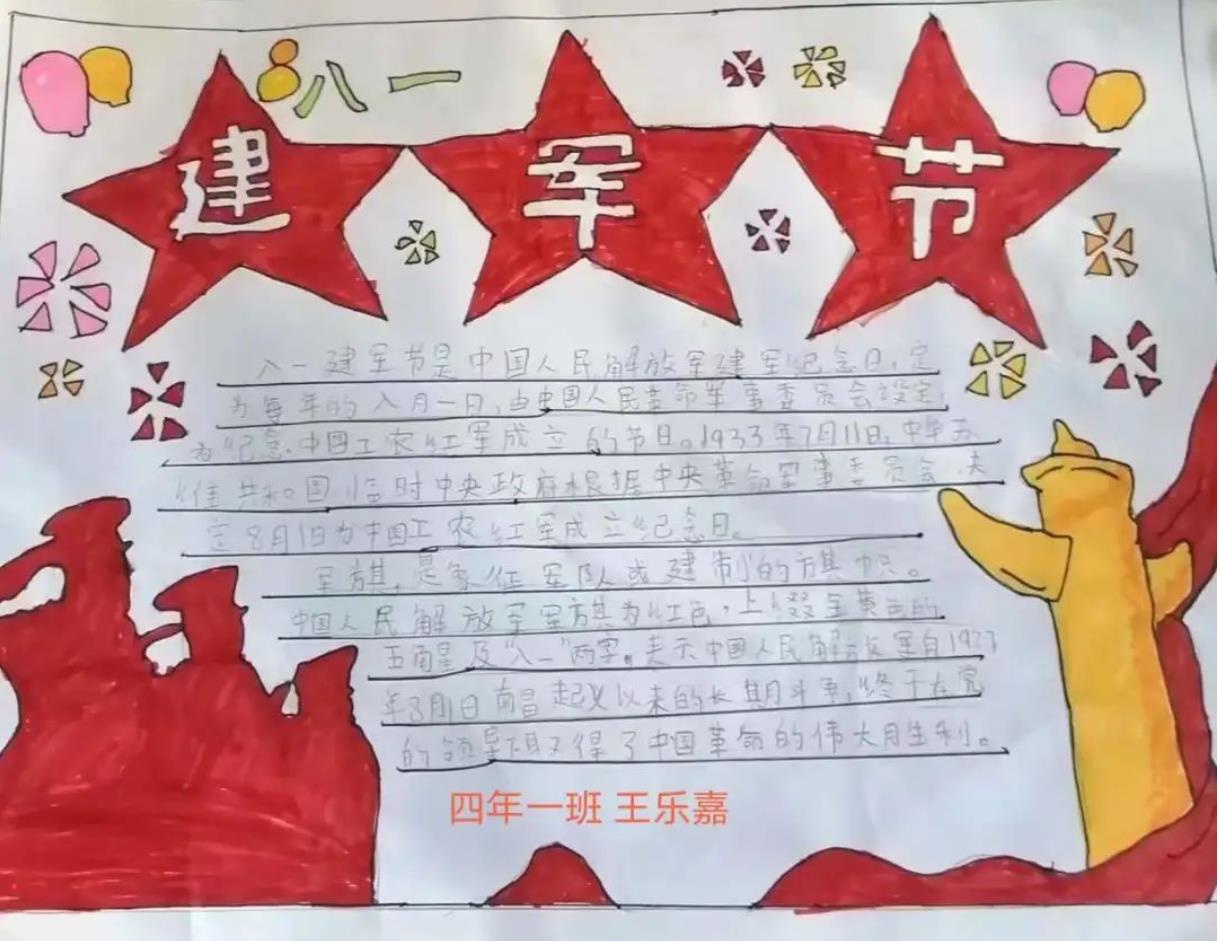 八一
建军节
八一建军节是中国人民解放军建军纪念日,定
为每年的八月一日,由中国人民革命军事委员会设定,
为纪念中国工农红军成立的节日。1933年7月11日,中华苏
维共和国临时中央政府根据中央革命军事委员会决
定8月1日为中国工农红军成立纪念日。
军旗,是象征军队或建制的旗帜。
中国人民解放军军旗为红色,上缀金黄色的
五角星及"八一"两字。表示中国人民解放军自1927
年8月1日南昌起义以来的长期斗争,终于在党
的领导下取得了中国革命的伟大胜利。
四年一班 王乐嘉